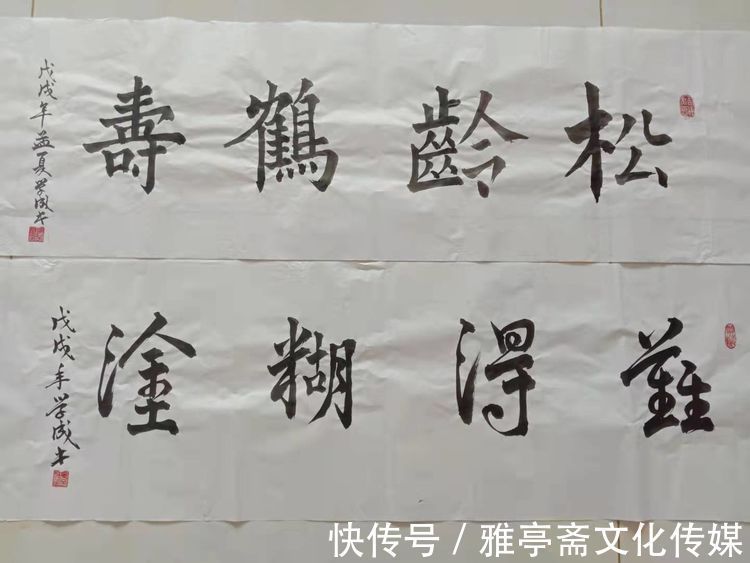 松齡鶴壽
戊戌年孟夏学成书
難得糊塗
戊戌年学成书
快传号 / 雅亭斋文化传媒